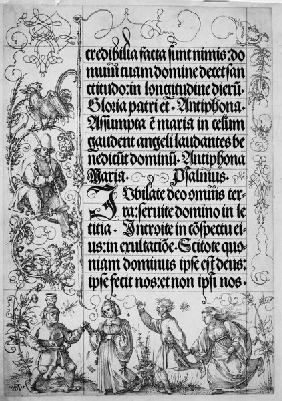 credibilia facta sunt nimis: do
mum tuam domine decet san
ctitudo: in longitudine dierū.
Gloria patri et · Antiphona ·
Assumpta ē maria in celum
gaudent angeli laudantes be
nedicūt dominū · Antiphona
Maria · Psalmus ·
Jubilate deo omnis ter
ra: seruite domino in le
titia · Introite in cōspectu ei
us: in exultatiōe · Scitote quo
niam dominus ipse est deus:
ipse fecit nos: et non ipsi nos ·